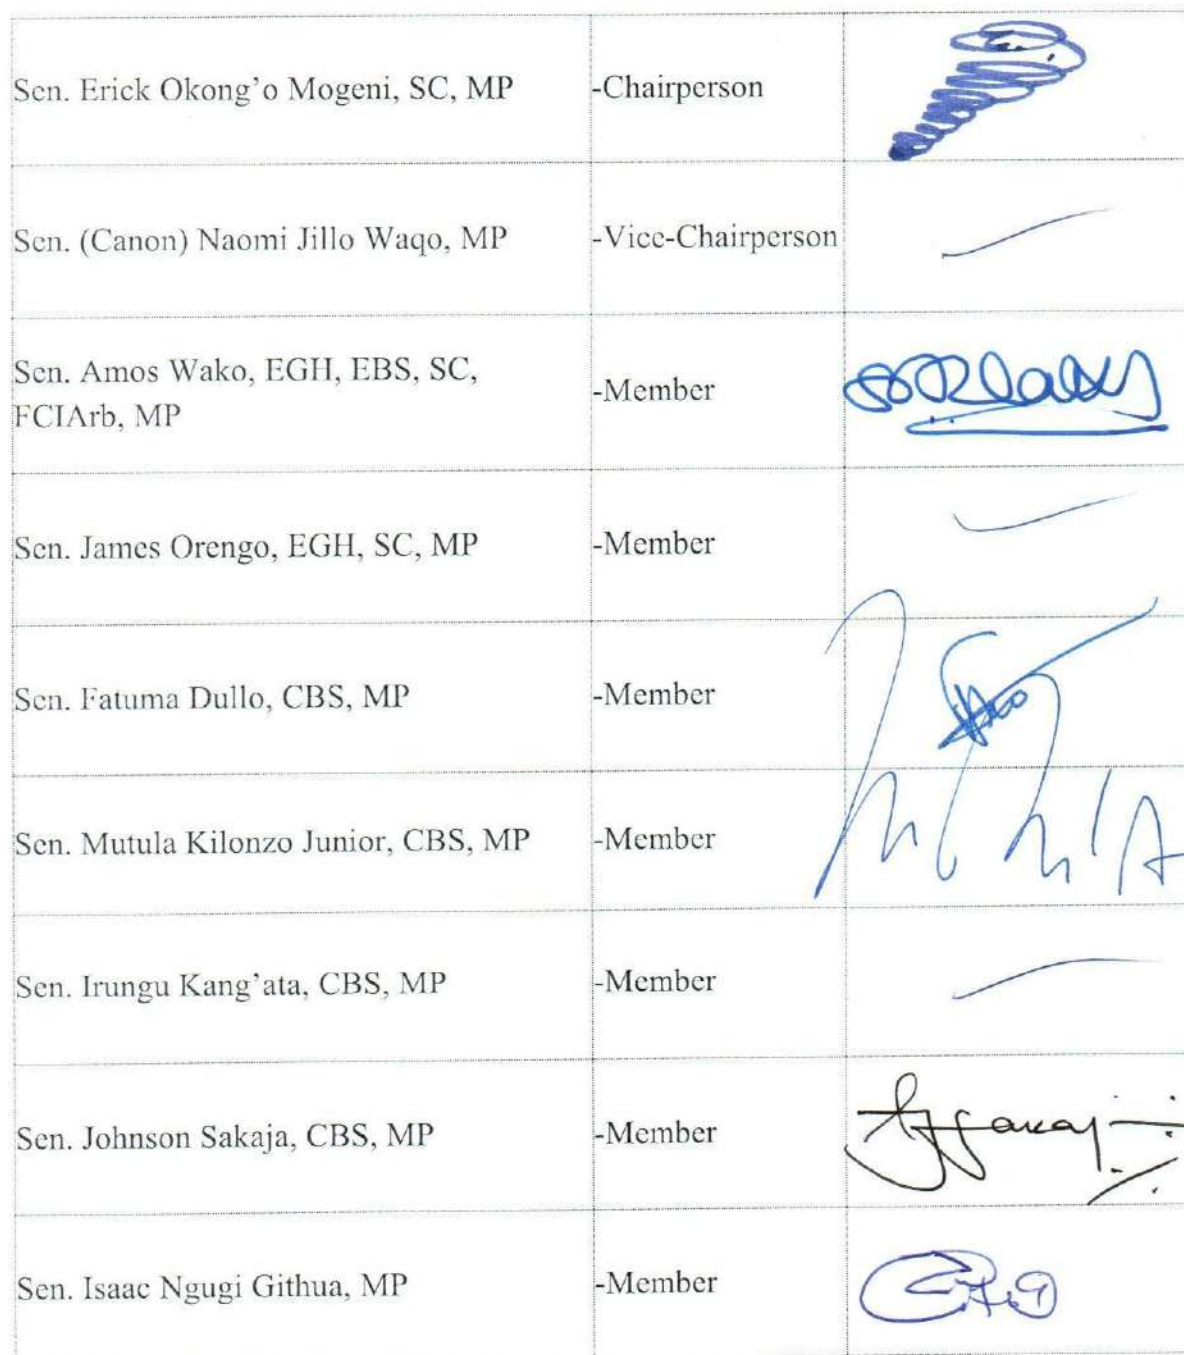 Sen. Erick Okong'o Mogeni, SC, MP -Chairperson
Sen. (Canon) Naomi Jillo Waqo, MP -Vice-Chairperson
Sen. Amos Wako, EGH, EBS, SC,
FCIArb, MP -Member
Sen. James Orengo, EGH, SC, MP -Member
Sen. Fatuma Dullo, CBS, MP -Member
Sen. Mutula Kilonzo Junior, CBS, MP -Member
Sen. Irungu Kang'ata, CBS, MP -Member
Sen. Johnson Sakaja, CBS, MP -Member
Sen. Isaac Ngugi Githua, MP -Member